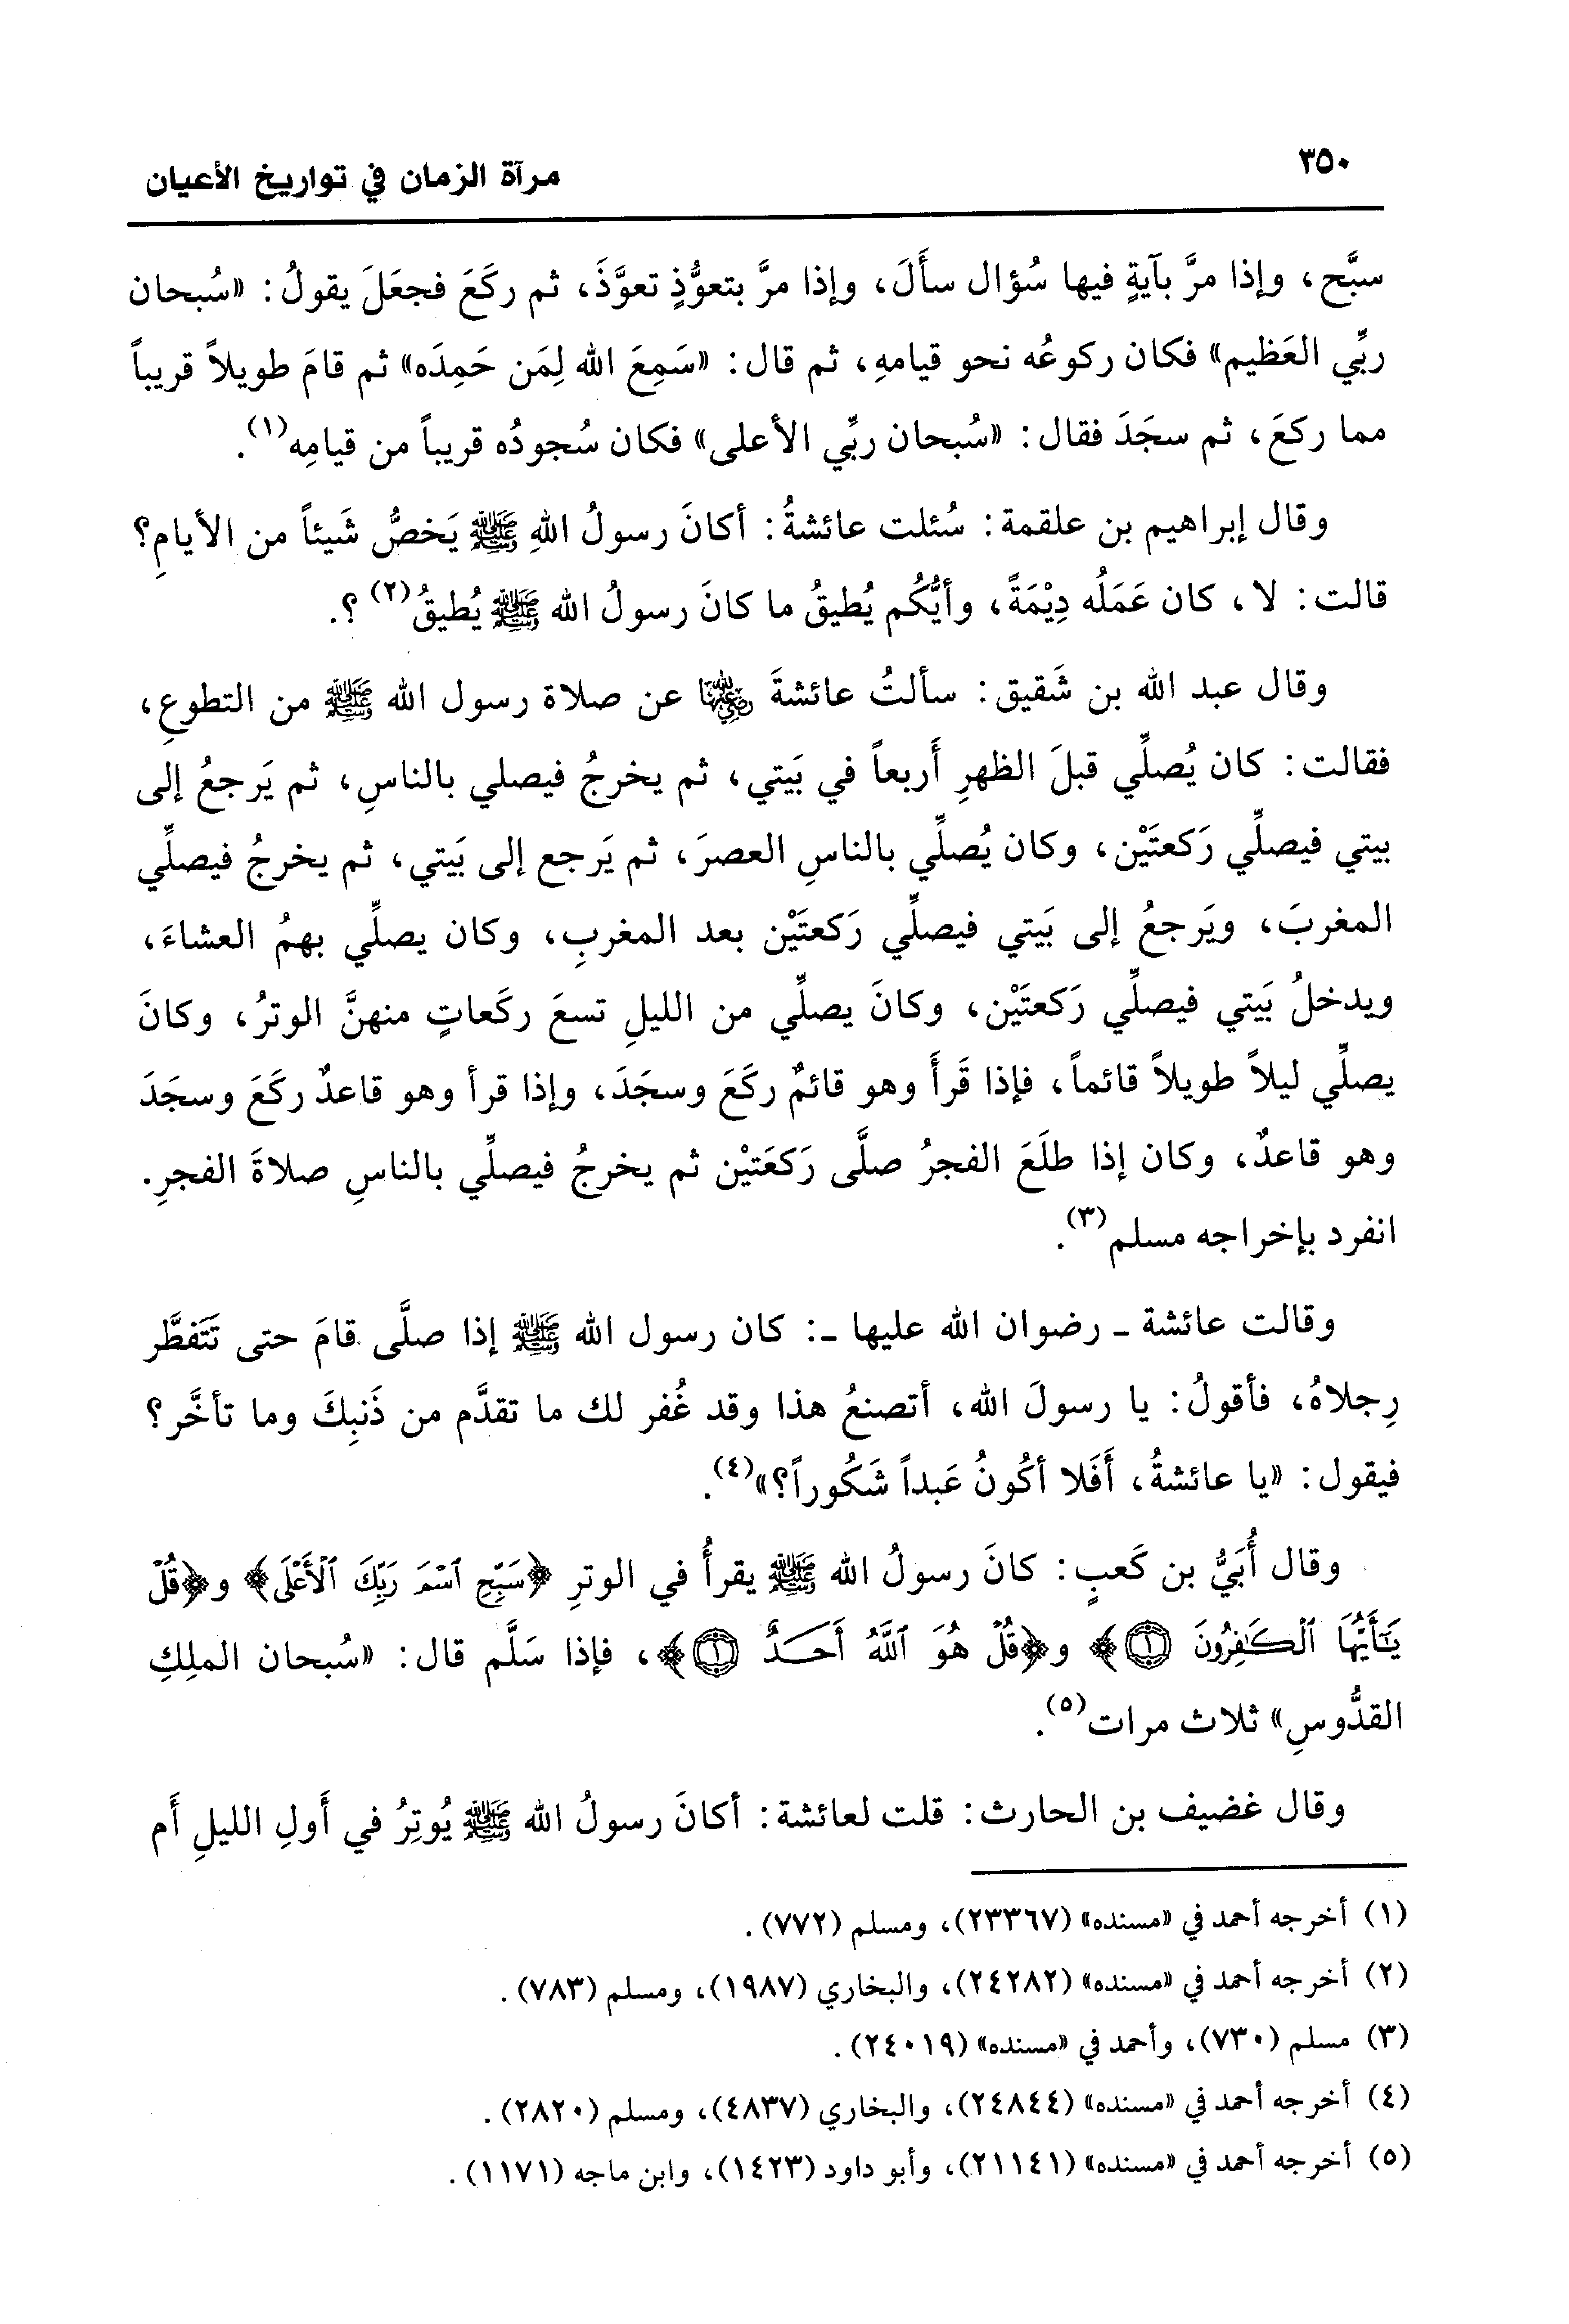 ٣٥٠
مرآة الزمان في تواريخ الأعيان
سبَّح، وإذا مرَّ بآيةٍ فيها سُؤال سأَلَ، وإذا مرَّ بتعوُّذٍ تعوَّذَ، ثم ركَعَ فجعَلَ يقولُ: «سُبحان
ربِّي العَظيم» فكان ركوعُه نحو قيامهِ، ثم قال: «سَمِعَ الله لِمَن حَمِدَه» ثم قامَ طويلاً قريباً
مما ركعَ، ثم سجَدَ فقال: «سُبحان ربِّي الأعلى» فكان سُجودُه قريباً من قيامِه(١).
وقال إبراهيم بن علقمة: سُئلت عائشةُ: أكانَ رسولُ اللهِ ﷺ يَخصُّ شَيئاً من الأيامِ؟
قالت: لا، كان عَمَلُه دِيْمَةً، وأيُّكُم يُطيقُ ما كانَ رسولُ الله ﷺ يُطيقُ(٢)؟.
وقال عبد الله بن شَقيق: سألتُ عائشةَ رضي الله عنها عن صلاة رسول الله ﷺ من التطوعِ،
فقالت: كان يُصلِّي قبلَ الظهرِ أَربعاً في بَيتي، ثم يخرجُ فيصلي بالناسِ، ثم يَرجعُ إلى
بيتي فيصلِّي رَكعتَيْن، وكان يُصلِّي بالناسِ العصرَ، ثم يَرجع إلى بَيتي، ثم يخرجُ فيصلِّي
المغربَ، ويَرجعُ إلى بَيتي فيصلِّي رَكعتَيْن بعد المغربِ، وكان يصلِّي بهمُ العشاءَ،
ويدخلُ بَيتي فيصلِّي رَكعتَيْن، وكانَ يصلِّي من الليلِ تسعَ ركَعاتٍ منهنَّ الوترُ، وكانَ
يصلِّي ليلاً طويلاً قائماً، فإذا قَرأَ وهو قائمٌ ركَعَ وسجَدَ، وإذا قرأ وهو قاعدٌ ركَعَ وسجَدَ
وهو قاعدٌ، وكان إذا طلَعَ الفجرُ صلَّى رَكعَتيْن ثم يخرجُ فيصلِّي بالناسِ صلاةَ الفجرِ.
انفرد بإخراجه مسلم(٣).
وقالت عائشة ـ رضوان الله عليها ـ: كان رسول الله ﷺ إذا صلَّى قامَ حتى تَتَفطَّر
رِجلاهُ، فأقولُ: يا رسولَ الله، أتصنعُ هذا وقد غُفر لك ما تقدَّم من ذَنبِكَ وما تأخَّر؟
فيقول: «يا عائشةُ، أَفَلا أكُونُ عَبداً شَكُوراً؟»(٤).
وقال أُبَيُّ بن كَعبٍ: كانَ رسولُ الله ﷺ يقرأُ في الوترِ ﴿سَبِّحِ ٱسْمَ رَبِّكَ ٱلْأَعْلَى﴾ و﴿قُلْ
يَٰٓأَيُّهَا ٱلْكَٰفِرُونَ ۝١﴾ و﴿قُلْ هُوَ ٱللَّهُ أَحَدٌ ۝١﴾، فإذا سَلَّم قال: «سُبحان الملِكِ
القدُّوسِ» ثلاث مرات(٥).
وقال غضيف بن الحارث: قلت لعائشة: أكانَ رسولُ الله ﷺ يُوتِرُ في أَولِ الليلِ أَم
(١) أخرجه أحمد في «مسنده» (٢٣٣٦٧)، ومسلم (٧٧٢).
(٢) أخرجه أحمد في «مسنده» (٢٤٢٨٢)، والبخاري (١٩٨٧)، ومسلم (٧٨٣).
(٣) مسلم (٧٣٠)، وأحمد في «مسنده» (٢٤٠١٩).
(٤) أخرجه أحمد في «مسنده» (٢٤٨٤٤)، والبخاري (٤٨٣٧)، ومسلم (٢٨٢٠).
(٥) أخرجه أحمد في «مسنده» (٢١١٤١)، وأبو داود (١٤٢٣)، وابن ماجه (١١٧١).